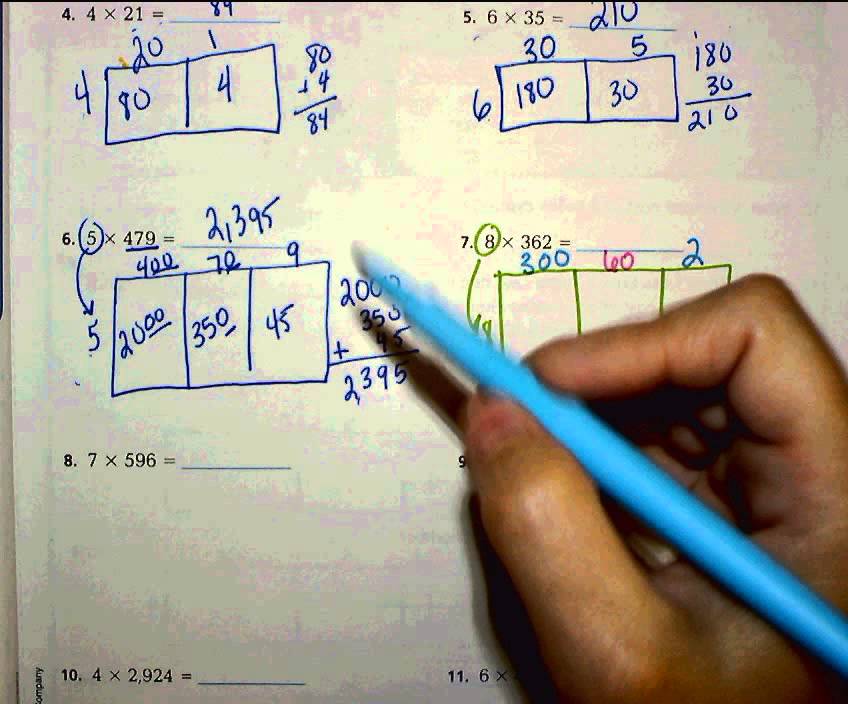 4. 4 × 21 = 84
20 1
4 80 4
80
+ 4
84
5. 6 × 35 = 210
30 5
6 180 30
180
30
210
6. 5 × 479 = 2,395
400 70 9
5 2000 350 45
2000
350
+ 45
2,395
7. 8 × 362 =
300 60 2
8. 7 × 596 =
9
10. 4 × 2,924 =
11. 6 ×